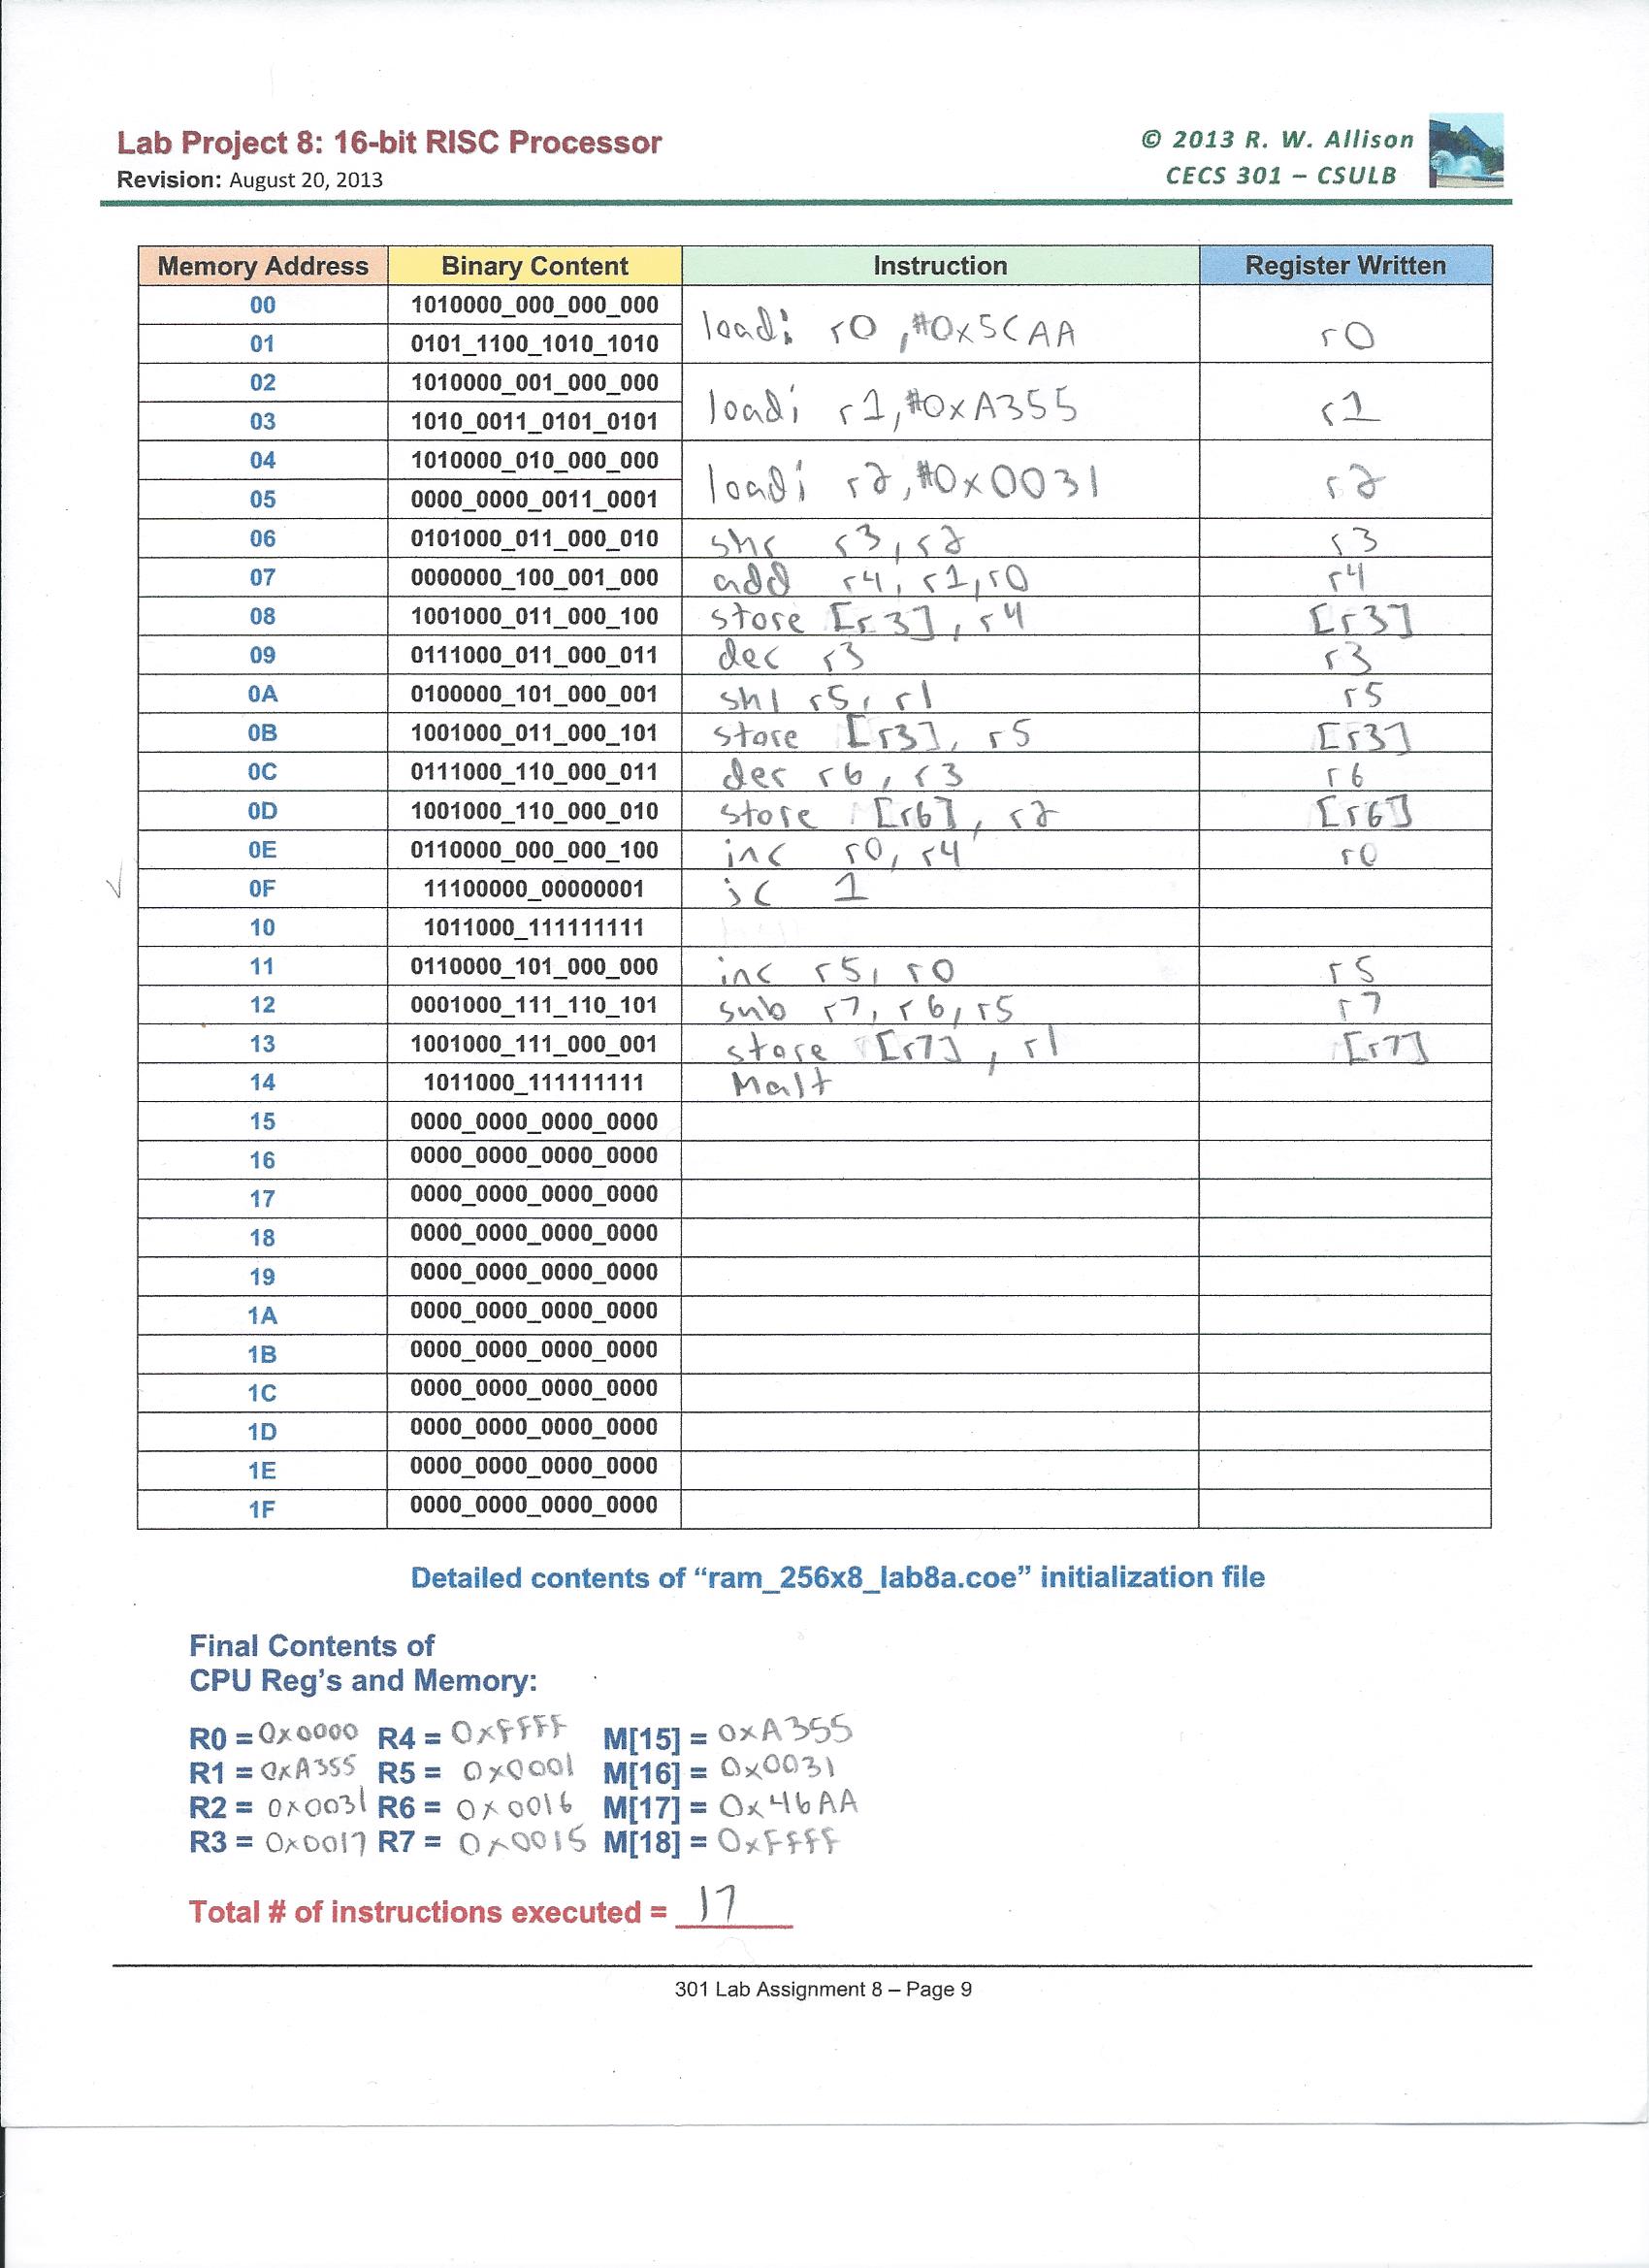 Lab Project 8: 16-bit RISC Processor
© 2013 R. W. Allison
Revision: August 20, 2013
CECS 301 – CSULB
Memory Address Binary Content Instruction Register Written
00 1010000_000_000_000 loadi r0, #0x5CAA r0
01 0101_1100_1010_1010
02 1010000_001_000_000 loadi r1, #0xA355 r1
03 1010_0011_0101_0101
04 1010000_010_000_000 loadi r2, #0x0031 r2
05 0000_0000_0011_0001
06 0101000_011_000_010 shr r3, r2 r3
07 0000000_100_001_000 add r4, r1, r0 r4
08 1001000_011_000_100 store [r3], r4 [r3]
09 0111000_011_000_011 dec r3 r3
0A 0100000_101_000_001 shl r5, r1 r5
0B 1001000_011_000_101 store [r3], r5 [r3]
0C 0111000_110_000_011 dec r6, r3 r6
0D 1001000_110_000_010 store [r6], r2 [r6]
0E 0110000_000_000_100 inc r0, r4 r0
✓ 0F 11100000_00000001 jc 1
10 1011000_111111111
11 0110000_101_000_000 inc r5, r0 r5
12 0001000_111_110_101 sub r7, r6, r5 r7
13 1001000_111_000_001 store [r7], r1 [r7]
14 1011000_111111111 Halt
15 0000_0000_0000_0000
16 0000_0000_0000_0000
17 0000_0000_0000_0000
18 0000_0000_0000_0000
19 0000_0000_0000_0000
1A 0000_0000_0000_0000
1B 0000_0000_0000_0000
1C 0000_0000_0000_0000
1D 0000_0000_0000_0000
1E 0000_0000_0000_0000
1F 0000_0000_0000_0000
Detailed contents of “ram_256x8_lab8a.coe” initialization file
Final Contents of
CPU Reg’s and Memory:
R0 = 0x0000 R4 = 0xFFFF M[15] = 0xA355
R1 = 0xA355 R5 = 0x0001 M[16] = 0x0031
R2 = 0x0031 R6 = 0x0016 M[17] = 0x46AA
R3 = 0x0017 R7 = 0x0015 M[18] = 0xFFFF
Total # of instructions executed = 17
301 Lab Assignment 8 – Page 9